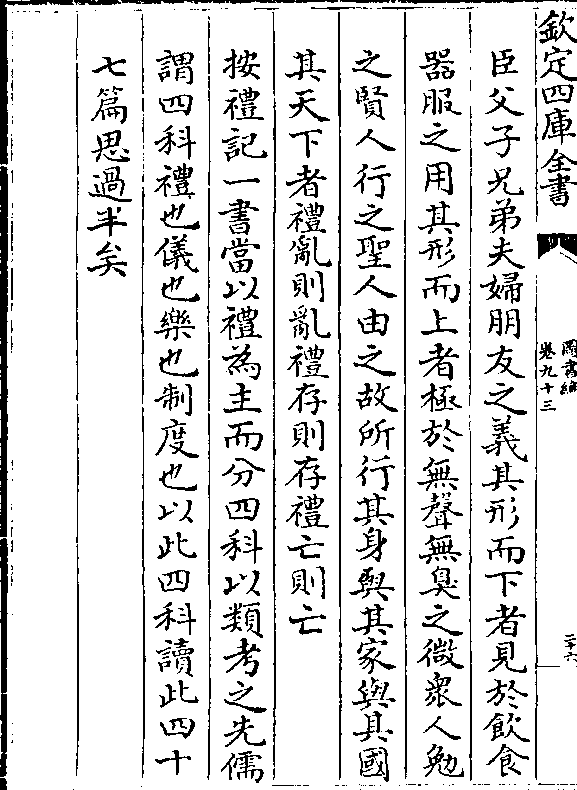 欽定四庫全書
圖書編
卷九十三
二十六
臣父子兄弟夫婦朋友之義其形而下者見於飲食
器服之用其形而上者極於無聲無臭之微衆人勉
之賢人行之聖人由之故所行其身與其家與其國
其天下者禮亂則亂禮存則存禮亡則亡
按禮記一書當以禮為主而分四科以類考之先儒
謂四科禮也儀也樂也制度也以此四科讀此四十
七篇思過半矣